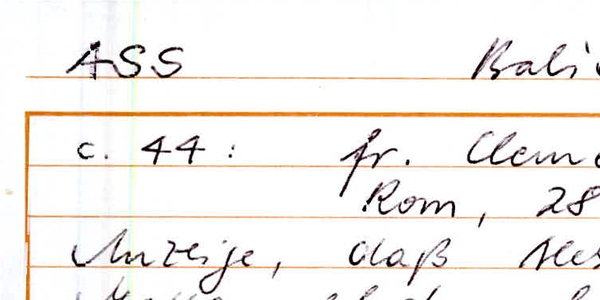 ASS Bali
c. 44: fr. Clem
Rom, 28
Anzeige, daß